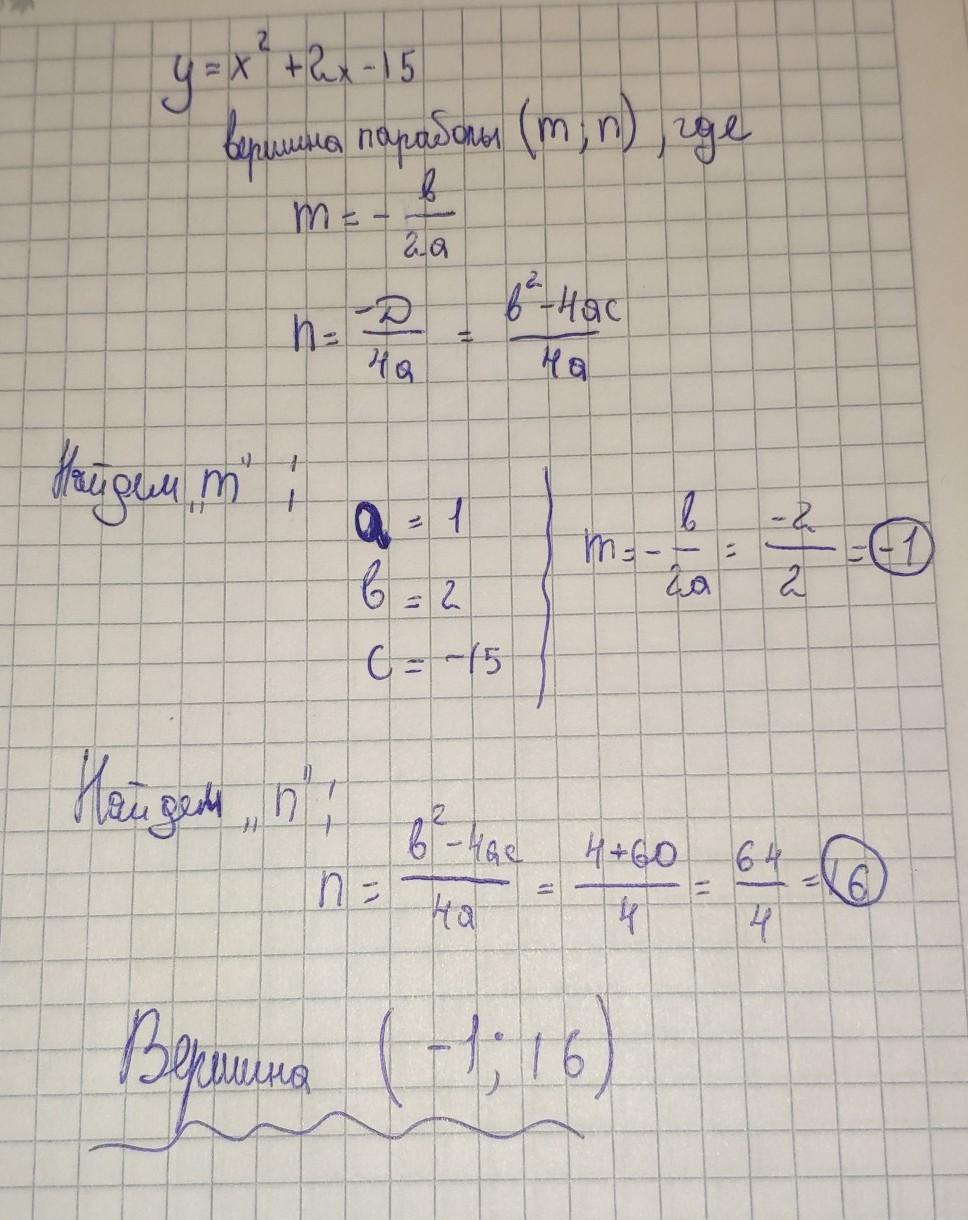 y = x² + 2x - 15
вершина параболы (m ; n) , где
m = - в/2a
n = -D/4a = в² - 4ac/4a
Найдем „m" :
a = 1
в = 2
c = -15
m = - в/2a = -2/2 = -1
Найдем „n" :
n = в² - 4ac/4a = 4+60/4 = 64/4 = 16
Вершина (-1 ; 16)